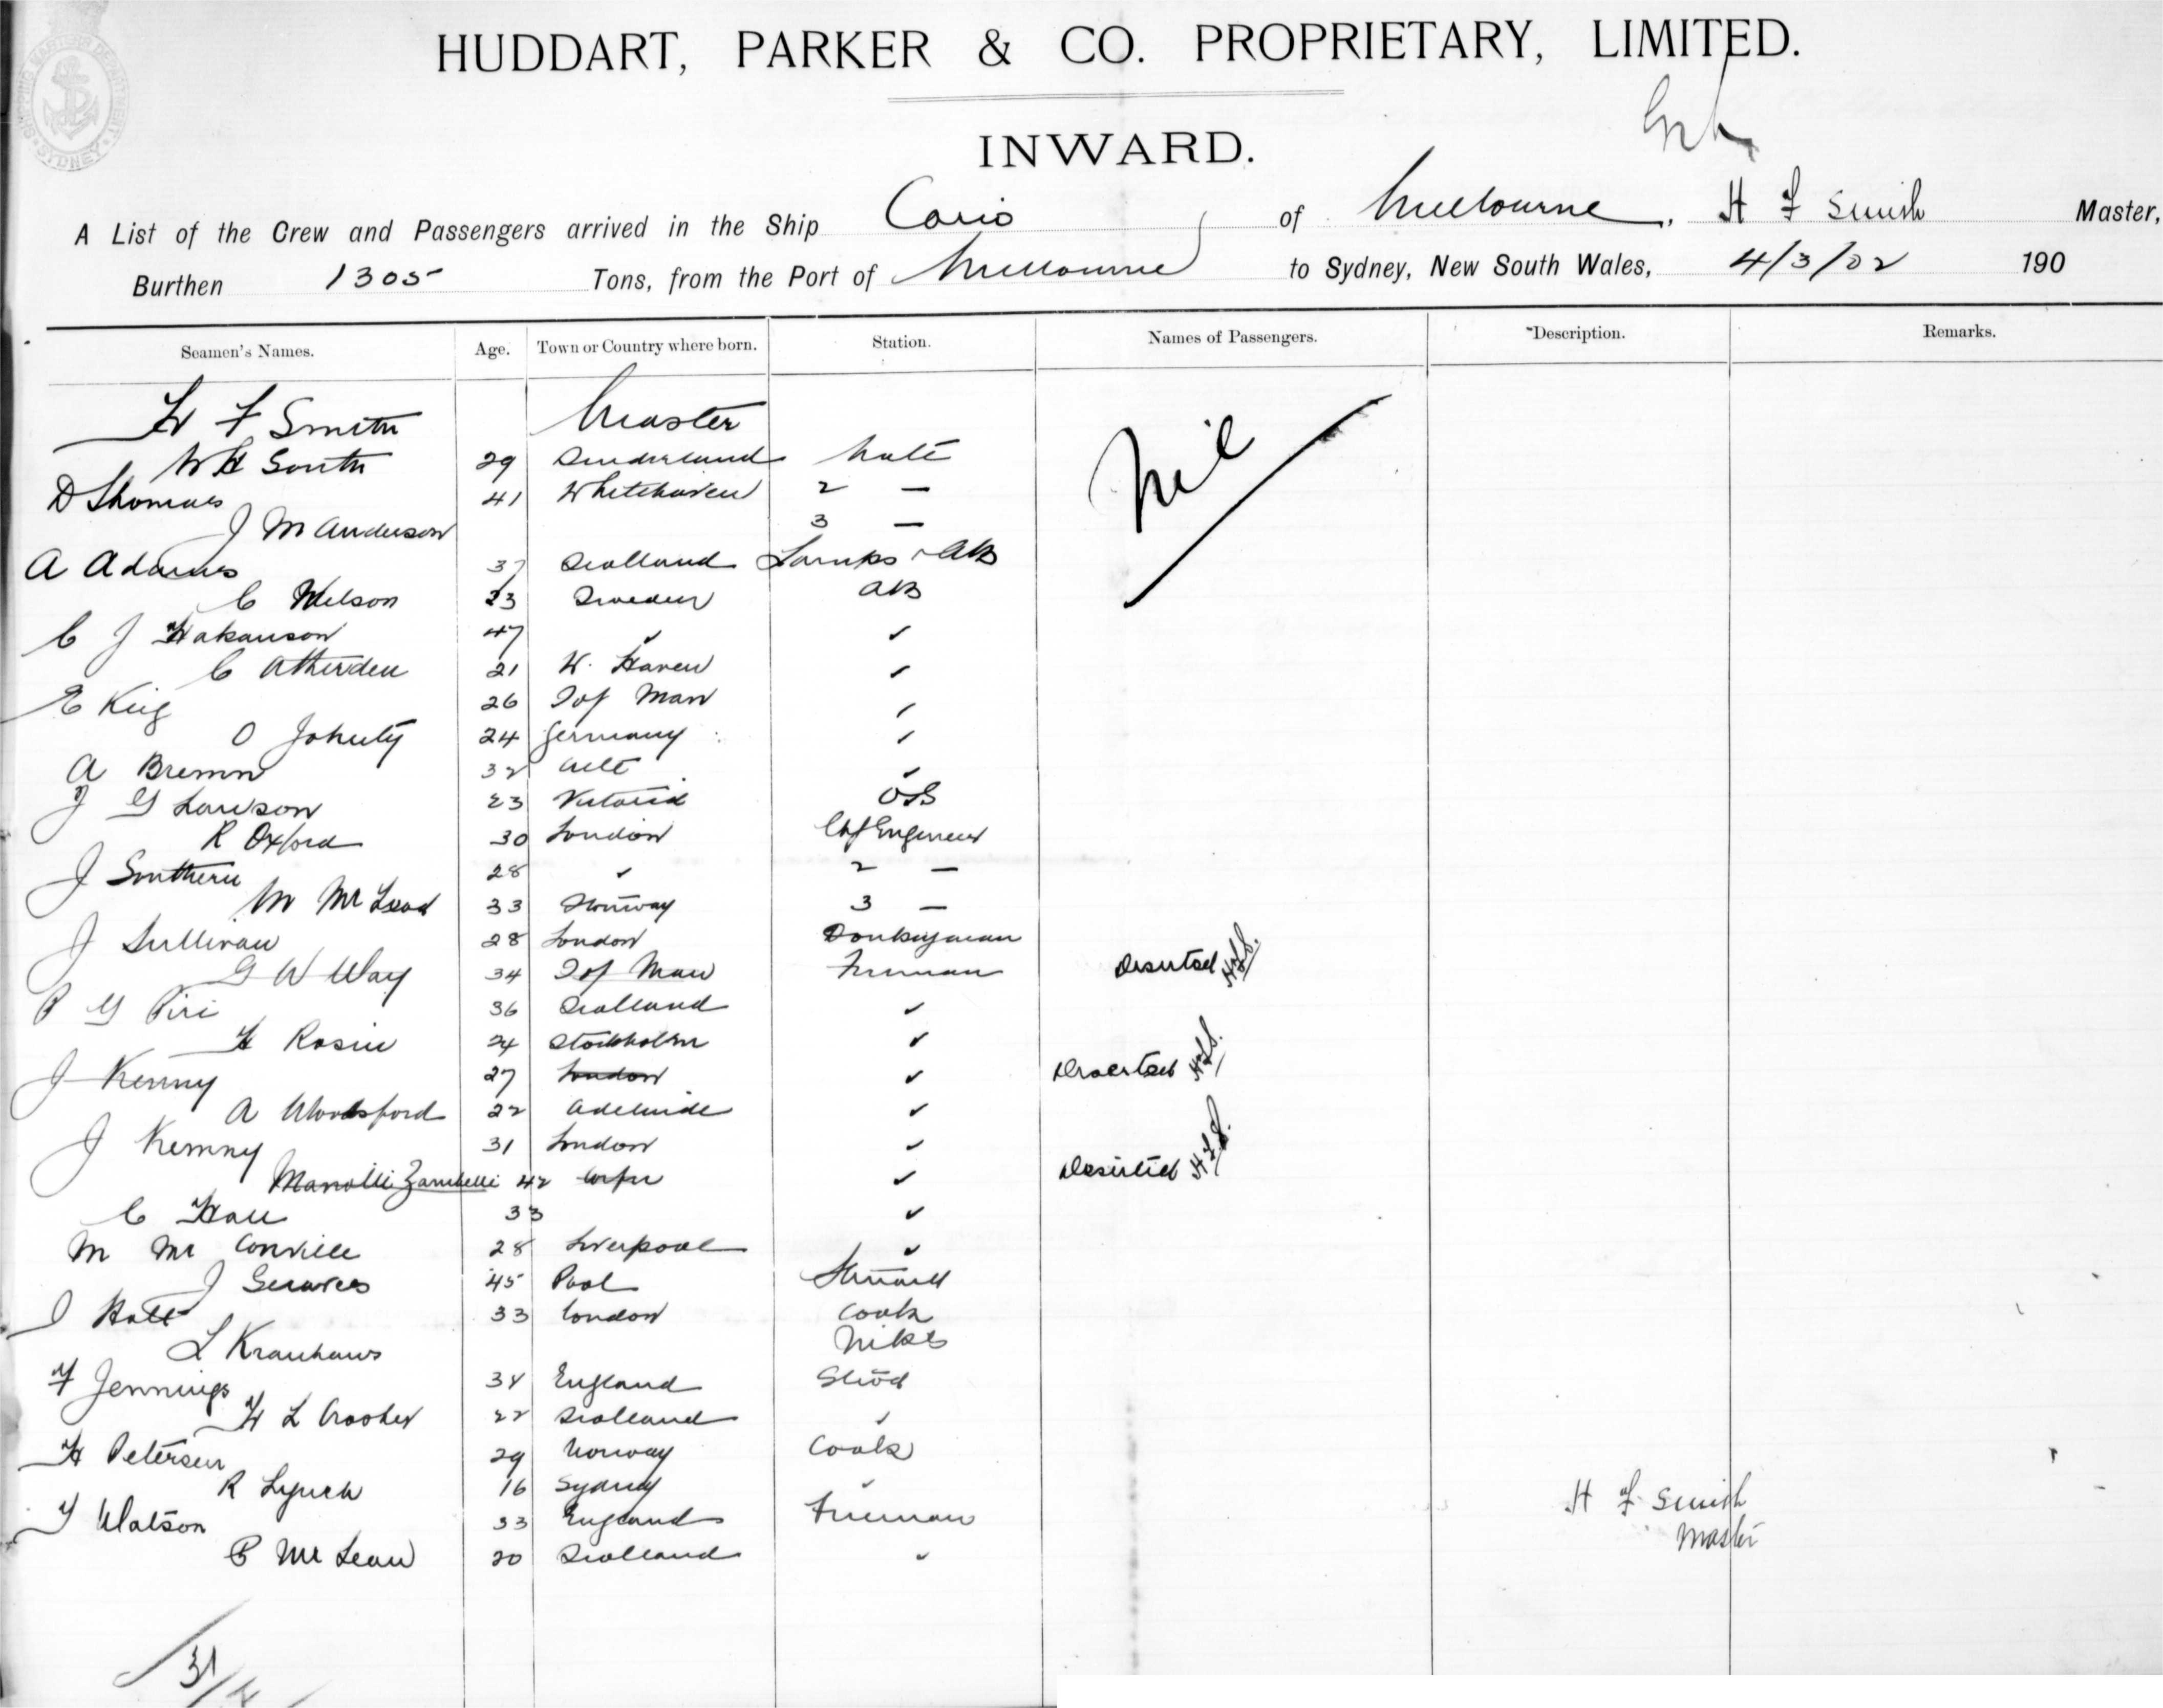 SHIPPING MASTERS DEPARTMENT SYDNEY
HUDDART, PARKER & CO. PROPRIETARY, LIMITED.
INWARD.
A List of the Crew and Passengers arrived in the Ship Corio of Melbourne, H F Smith Master,
Burthen 1305 Tons, from the Port of Melbourne to Sydney, New South Wales, 4/3/02 190
Seamen's Names. Age. Town or Country where born. Station. Names of Passengers. Description. Remarks.
H F Smith Master
W H South 29 Sunderland Mate Nil
D Thomas 41 Whitehaven 2 —
J M Anderson 3 —
A Adams 37 Scotland Lamps & AB
C Nelson 23 Sweden AB
C J Hakanson 47 ✓ ✓
C Atherden 21 W. Haven ✓
E King 26 I of Man ✓
O 24 Germany ✓
A Bremn 32 ✓
J G Lawson 23 Victoria OS
R Oxford 30 London Chf Engineer
J Southern 28 ✓ 2 —
M McLeod 33 3 —
J Sullivan 28 London Donkeyman
G W Way 34 I of Man Fireman Deserted HFS.
P G Piri 36 Scotland ✓
H Rosin 24 Stockholm ✓
J Kenny 27 London ✓ Deserted HFS.
A Woodsford 22 Adelaide ✓
J Kemny 31 London ✓
Manolli Zambelli 42 Corfu ✓ Deserted HFS.
C Hall 33 ✓
M McConville 28 Liverpool ✓
J 45 Pool Steward
J Hatt 33 London Cook
L Kranhaws
F Jennings 34 England Stwd
H L Crocker 22 Scotland ✓
H Petersen 29 Norway Cook
R Lynch 16 Sydney ✓
T Watson 33 England Fireman
P McLean 20 Scotland ✓
H F Smith
Master
31